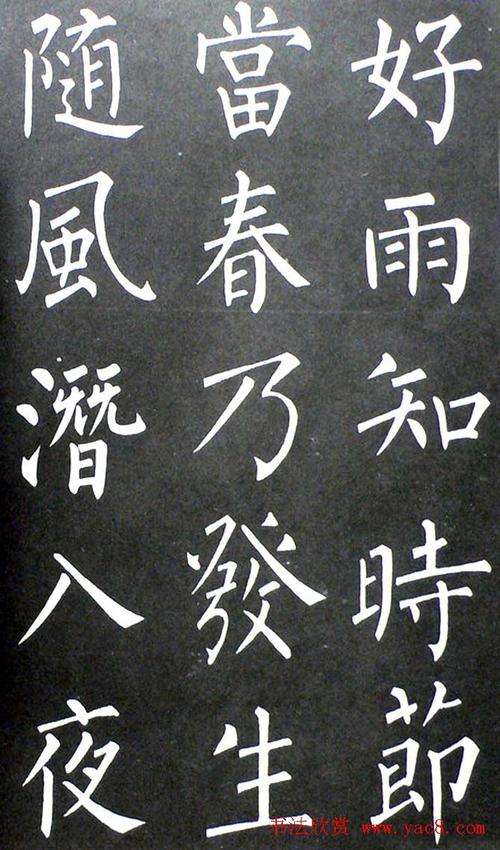 好雨知時節
當春乃發生
隨風潛入夜
书法欣赏 www.yac8.com